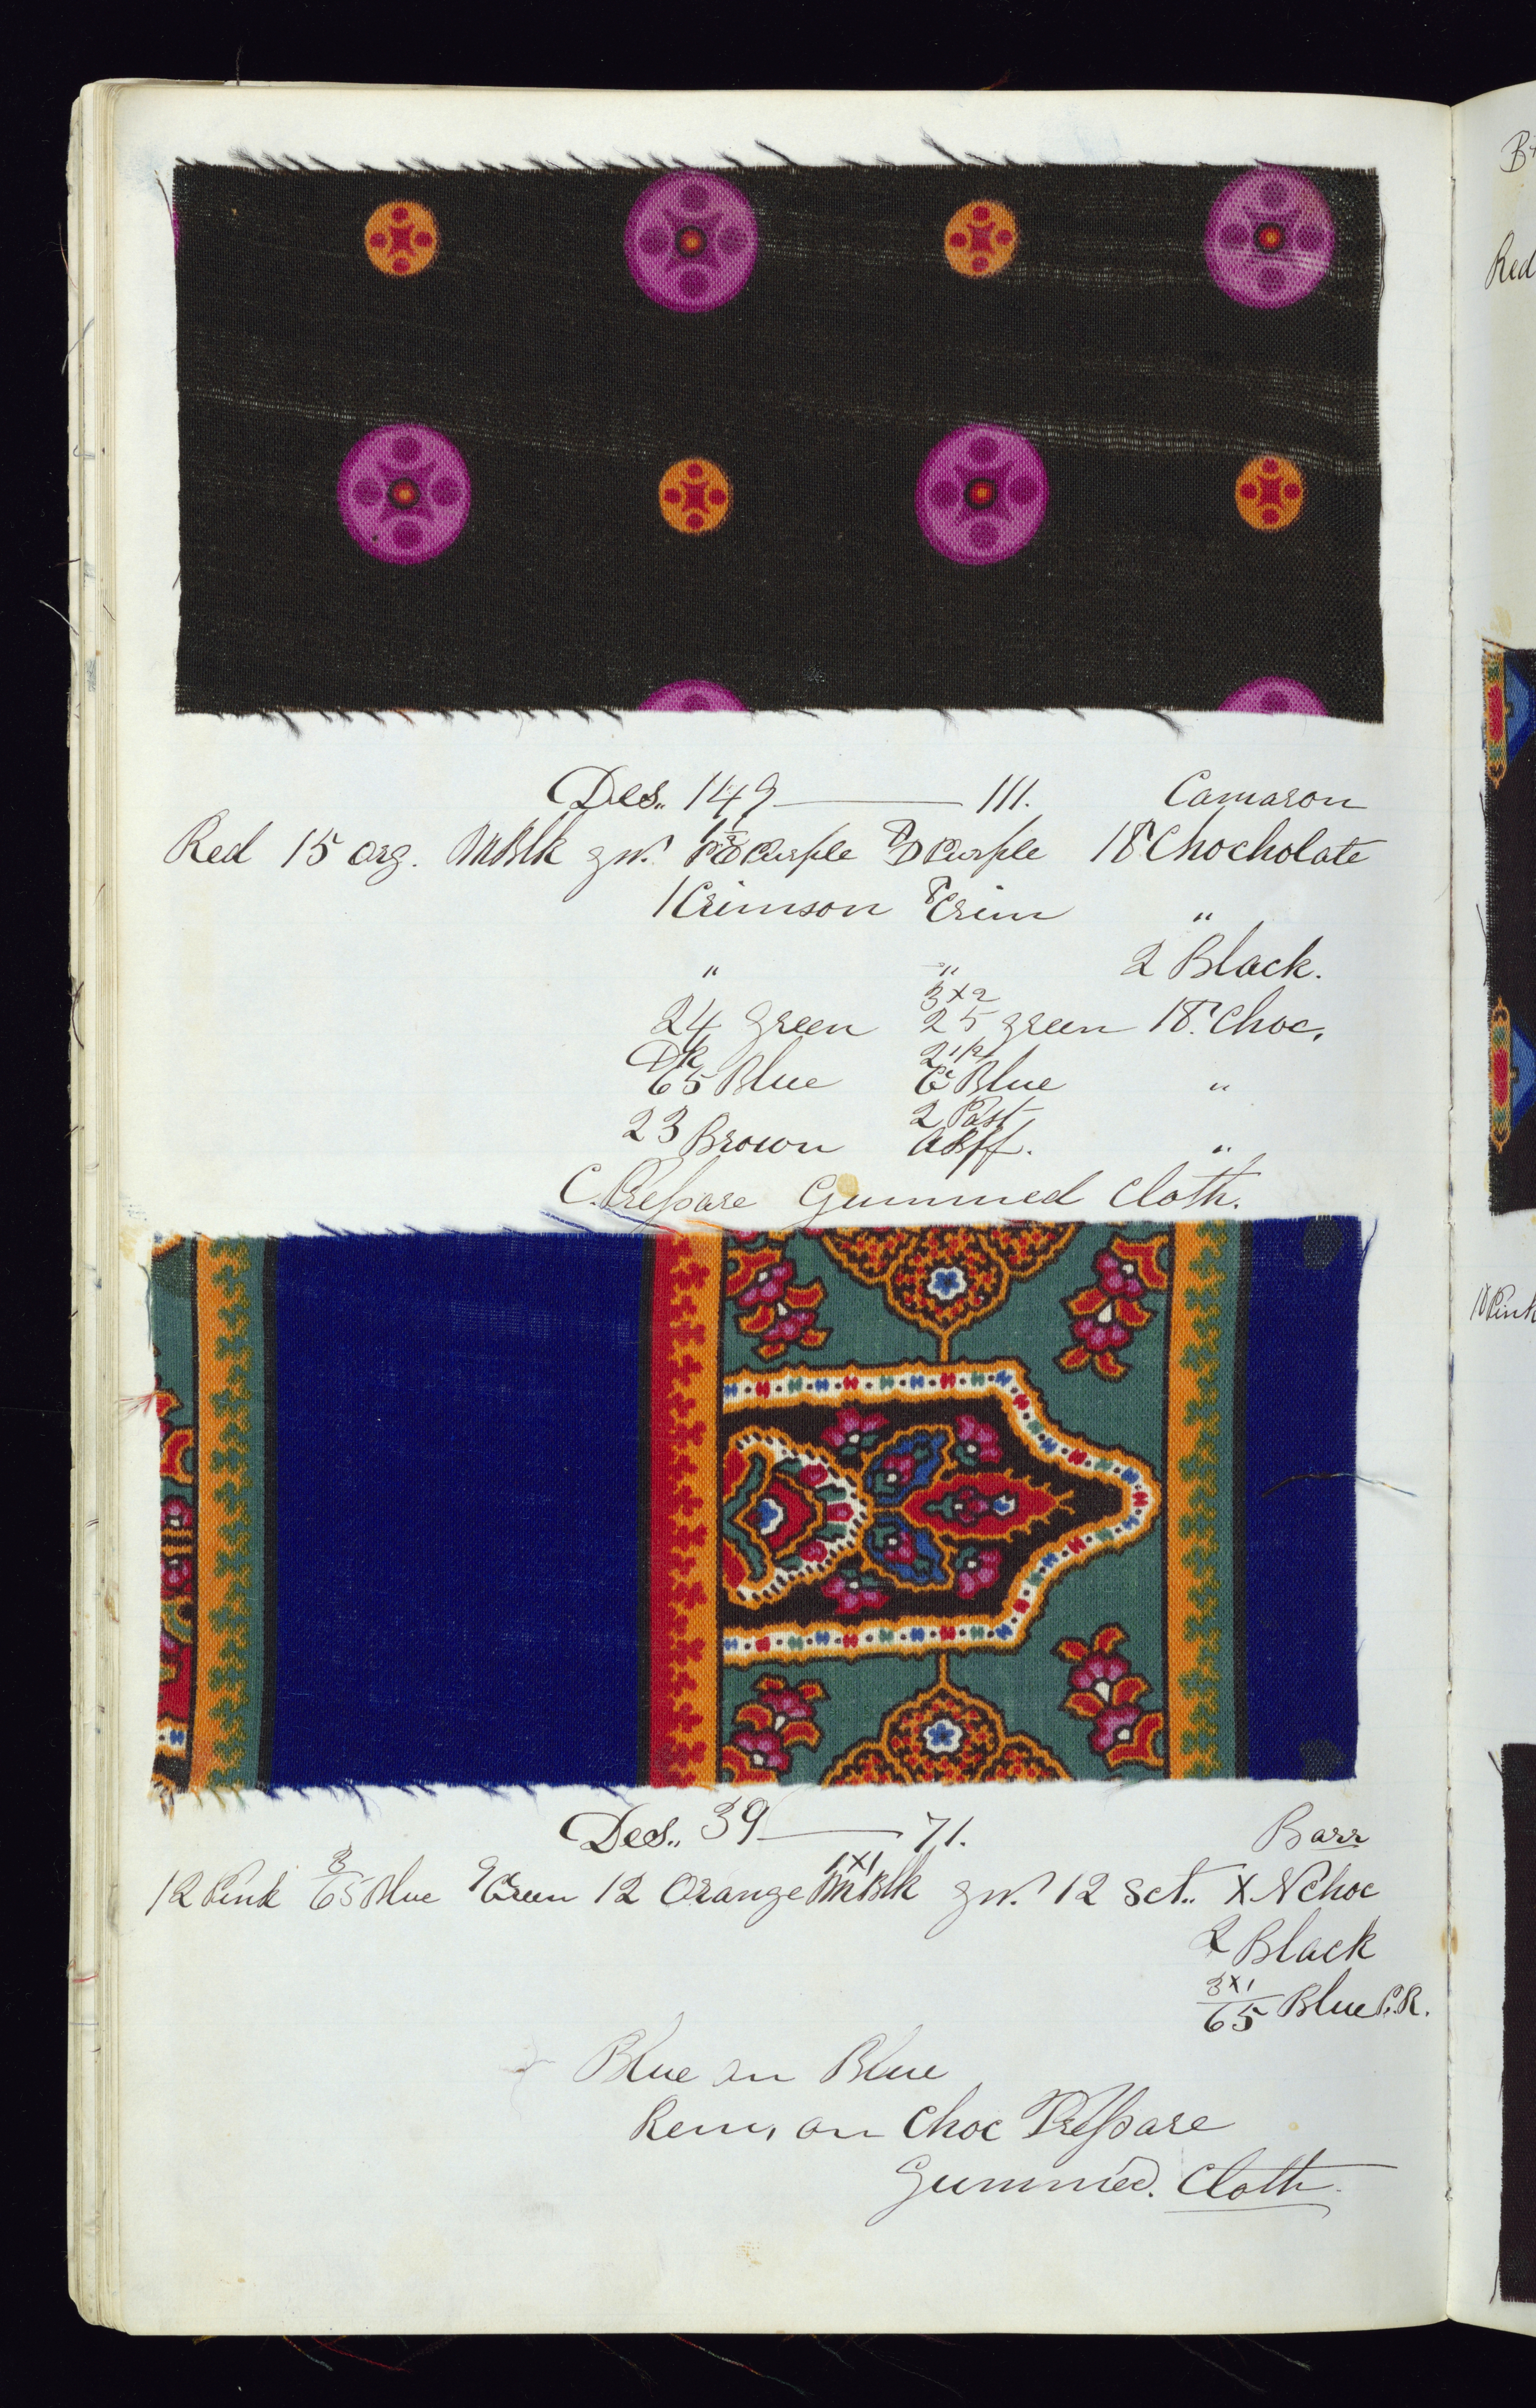 Des,, 149 — 111. Camaron
Red 15 org. Blk gn. Purple D Purple 18 Chocholate
1 Crimson 8 Crim "
" " 2 Black.
3x2
24 Green 25 green 18. Choc,
Dk 2 1/2
65 Blue Blue "
23 Brown 2 Past "
C. Prepare Gummed Cloth.
Des,, 39 — 71. Barr
12 Pink 3/65 Blue 9 Green 12 Orange 1x1 Blk gn. 12 Sct.. X N Choc
2 Black
3x1/65 Blue P.R.
Blue on Blue
Rem, on Choc Prepare
Gummed. Cloth
B
Red
Pink